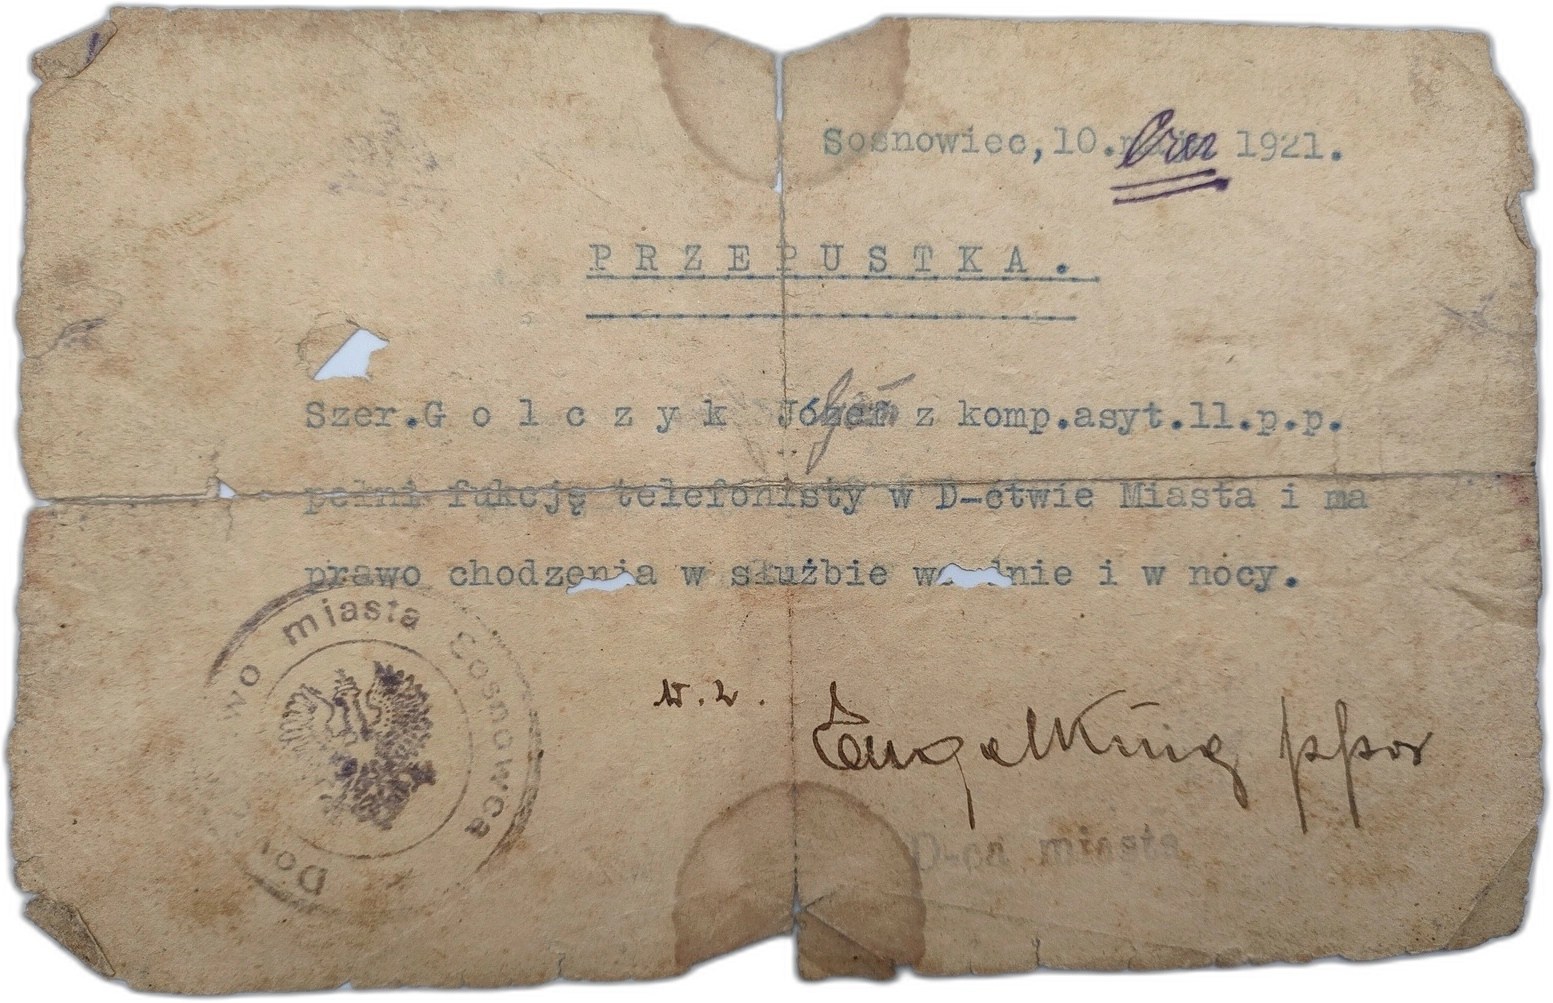 Sosnowiec, 10. 1921.
PRZEPUSTKA.
Szer.Golczyk Józef z komp.asyt.11.p.p.
pełni fukcję telefonisty w D-ctwie Miasta i ma
prawo chodzenia w służbie w dnie i w nocy.
miasta Sosnowca
w. z. Engelking ppor
D-ca miasta